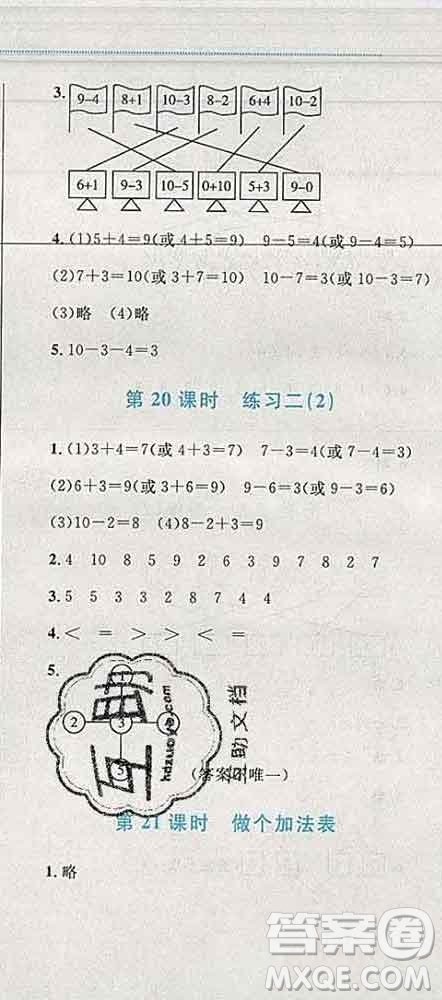 3. 9−4 8+1 10−3 8−2 6+4 10−2
6+1 9−3 10−5 0+10 5+3 9−0
4. (1)5+4=9(或4+5=9) 9−5=4(或9−4=5)
(2)7+3=10(或3+7=10) 10−7=3(或10−3=7)
(3)略 (4)略
5. 10−3−4=3
第20课时 练习二(2)
1. (1)3+4=7(或4+3=7) 7−3=4(或7−4=3)
(2)6+3=9(或3+6=9) 9−6=3(或9−3=6)
(3)10−2=8 (4)8−2+3=9
2. 4 10 8 5 9 2 6 3 9 7 8 2 7
3. 5 5 3 3 2 8 7 4 4
4. < = > > < =
5.
2 3 4
5
互助
hdzuoye.com
互助文档
(答案不唯一)
第21课时 做个加法表
1. 略
答案圈
MXQE.COM